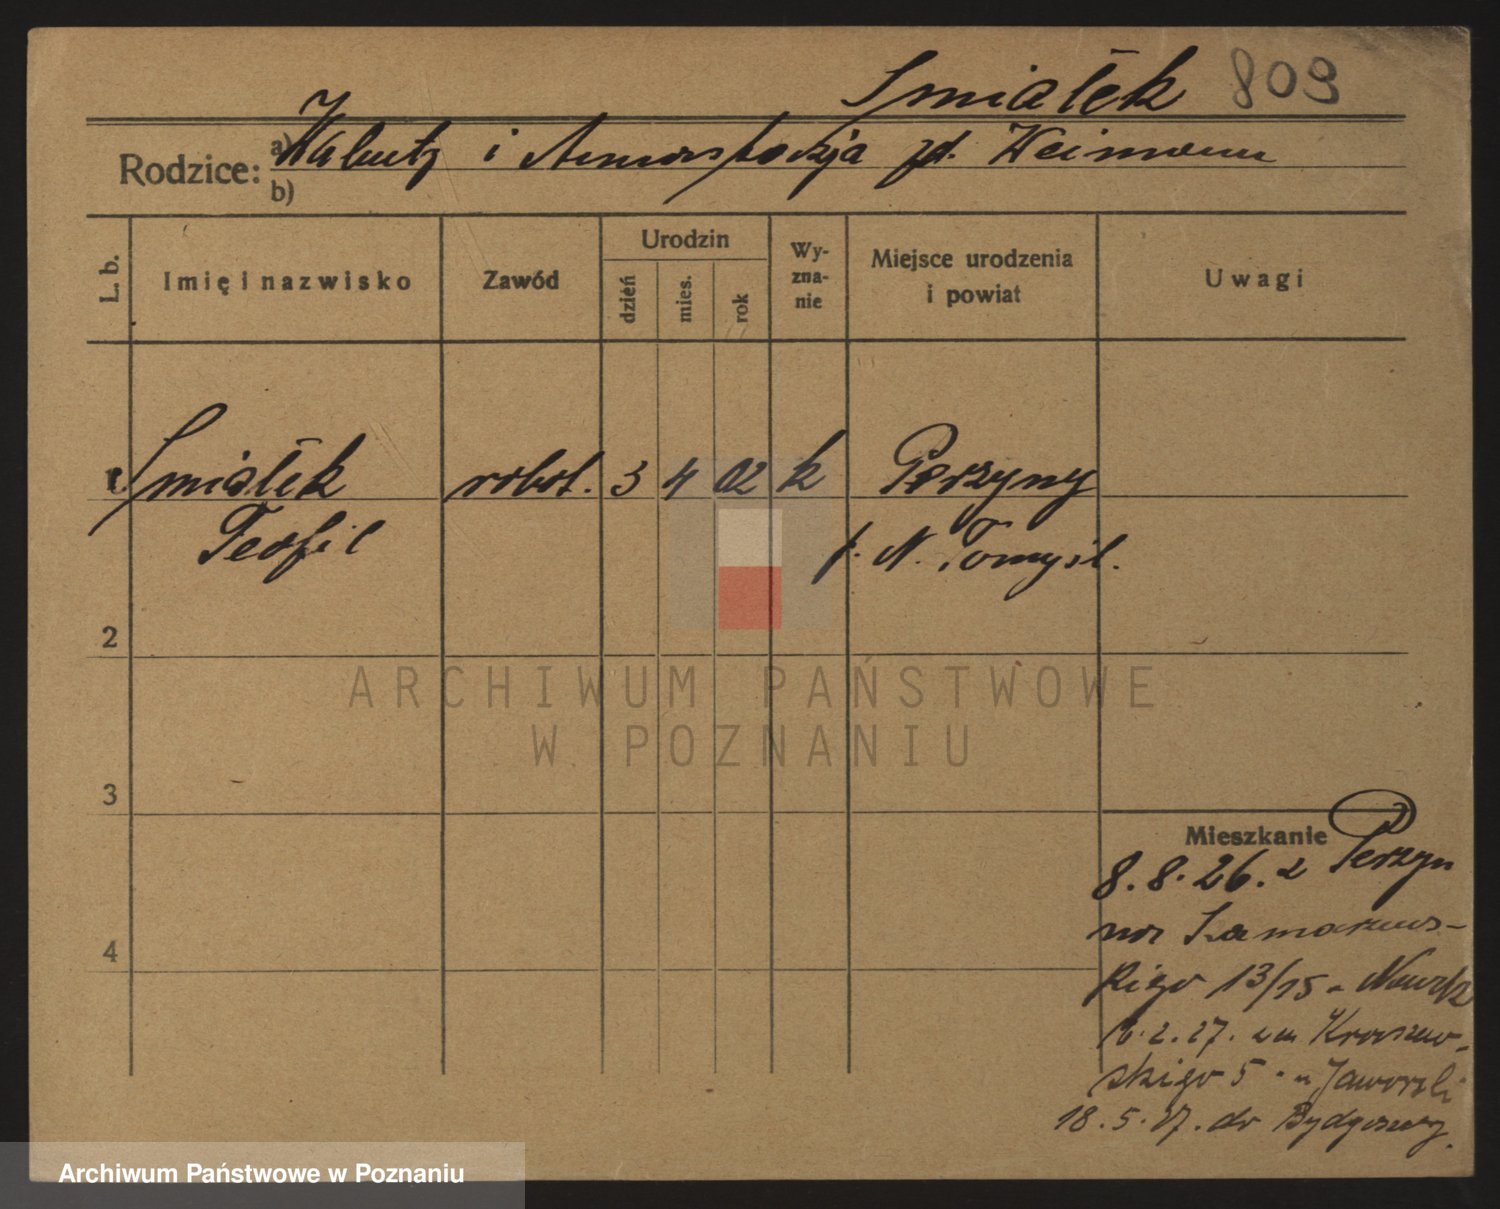 Śmiałek 809
Rodzice:
a) Walenty i Anastazja zd. Weimann
b)
L. b. Imię i nazwisko Zawód Urodzin dzień mies. rok Wy-zna-nie Miejsce urodzenia i powiat Uwagi
1 Śmiałek robot. 3 4 02 k Perzyny
Teofil p. N. Tomyśl.
2
ARCHIWUM PAŃSTWOWE
W POZNANIU
3
Mieszkanie
8.8.26. z Perzyn
na Szamarzews-
kiego 13/15 -
6.2.27. na Kraszew-
skiego 5 - u Jaworski
18.5.27. do Bydgoszczy.
4
Archiwum Państwowe w Poznaniu